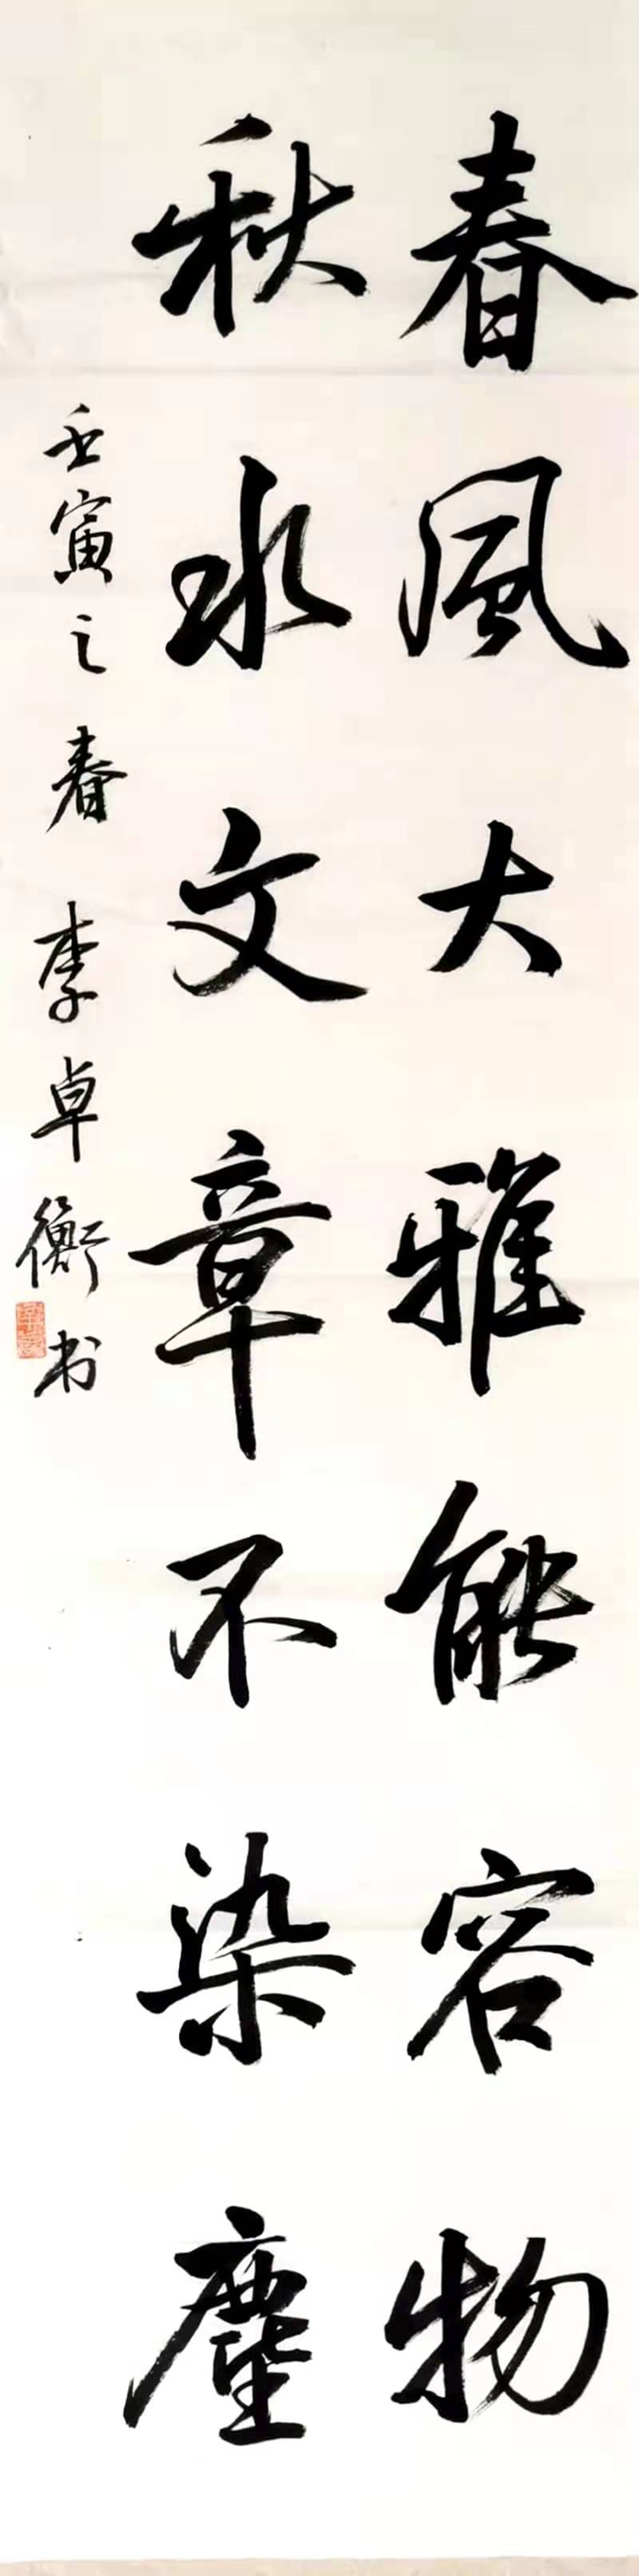 春風大雅能容物
秋水文章不染塵
壬寅之春 李卓衡书